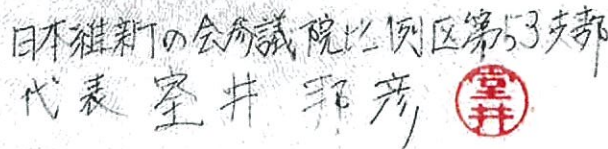 日本維新の会参議院比例区第53支部
代表 室井 邦彦 室井